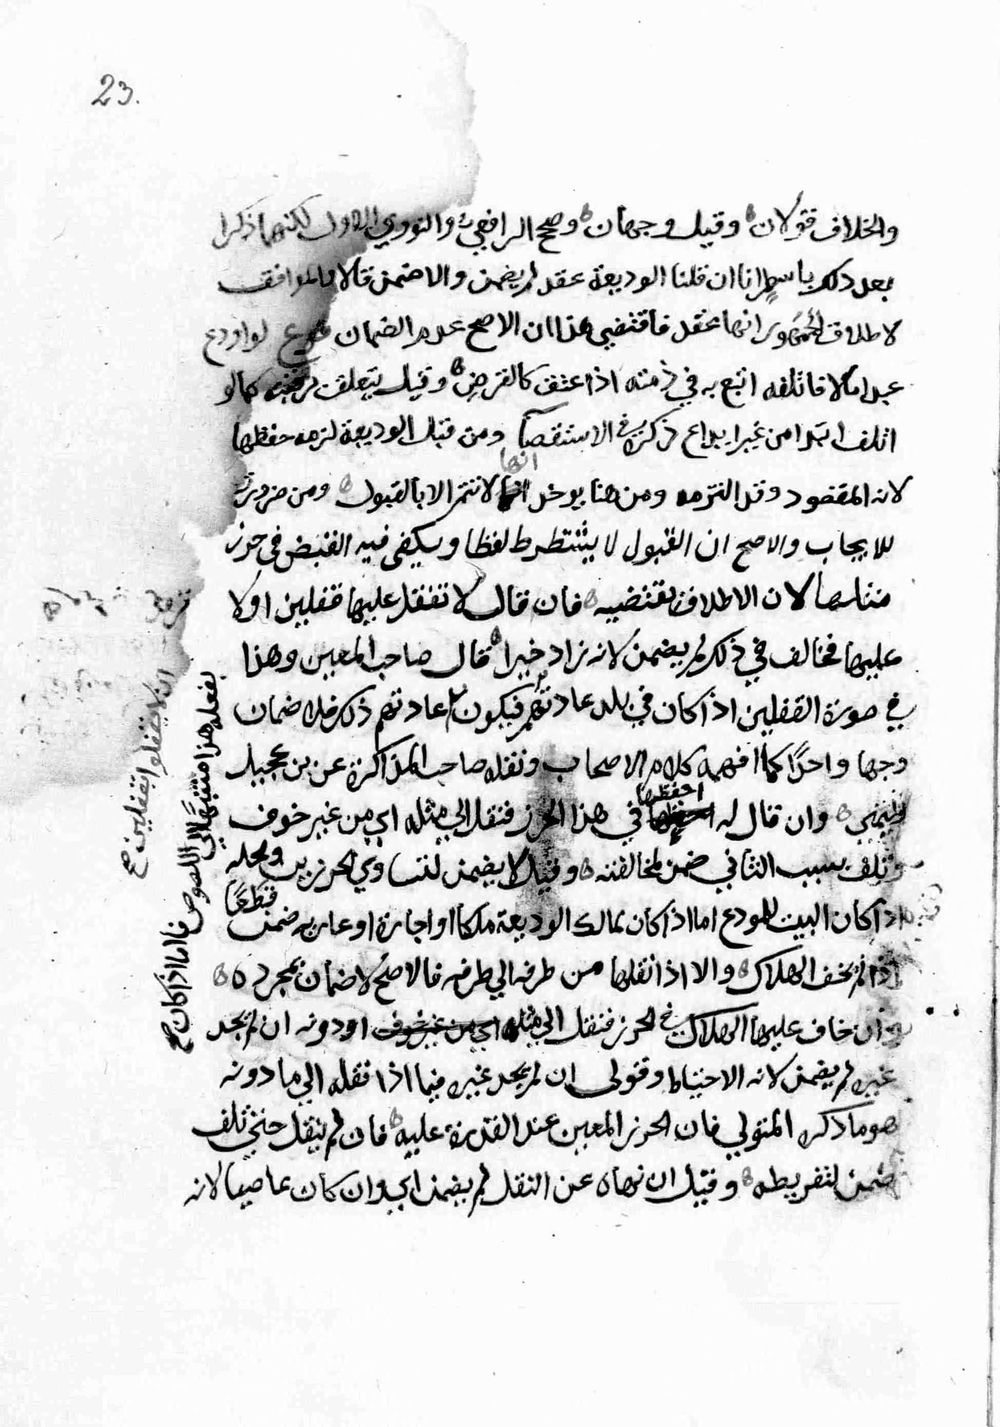 23.
والخلاف قولان ه وقيل وجهان ه وصحح الرافعي والنووي الاول لكنهما ذكرا
بعد ذلك باسطر انا ان قلنا الوديعة عقد لم يضمن والا ضمن قالا والموافق
لاطلاق الجمهور انها عقد فاقتضى هذا ان الاصح عدم الضمان فرع لو اودع
عبدا مالا فاتلفه اتبع به في ذمته اذا عتق كالقرض ه وقيل يتعلق برقبته كما لو
اتلف ابتدا من غير ايداع ذكره في الاستقصا ومن قبل الوديعة لزمه حفظها
لانه المقصود وقد التزمه ومن هنا يوخذ انها لا تتم الا بالقبول ه ومن ضرورته
الايجاب والاصح ان القبول لا يشترط لفظا ويكفي فيه القبض في حرز
مثلها لان الاطلاق يقتضيه ه فان قال لا تقفل عليها قفلين او لا
عليها فخالف في ذلك لم يضمن لانه زاد خيرا ه قال صاحب المعين وهذا
في صورة القفلين اذا كان في بلد عادتهم فيكون عادتهم ذلك فلا ضمان
وجها واحدا كما افهمه كلام الاصحاب ونقله صاحب المذاكرة عن بن عجيل
وان قال له احفظها في هذا الحرز فنقل الى مثله اي من غير خوف
وتلف بسبب الثاني ضمن لمخالفته ه وقيل لا يضمن لتساوي الحرزين ومحله
اذا كان البيت للمودع اما اذا كان لمالك الوديعة ملكا او اجارة او عارية ضمن قطعا
اذا لم يخف الهلاك ه والا اذا نقلها من طرف الى طرف فالاصح لا ضمان بمجرده ه
وان خاف عليها الهلاك في الحرز فنقل الى مثله اي من غير خوف او دونه ان لم يجد
غيره لم يضمن لانه الاحتياط وقولي ان لم يجد غيره فيما اذا نقله الى ما دونه
هو ما ذكره المتولي فان الحرز المعين عند القدرة عليه ه فان لم ينقل حتى تلف
ضمن لتفريطه ه وقيل ان نهاه عن النقل لم يضمن اي وان كان عاصيا لانه
لا يقفلوا قفلين
بفعله هذا منتبها لا اللصوص فاما اذا كان صح